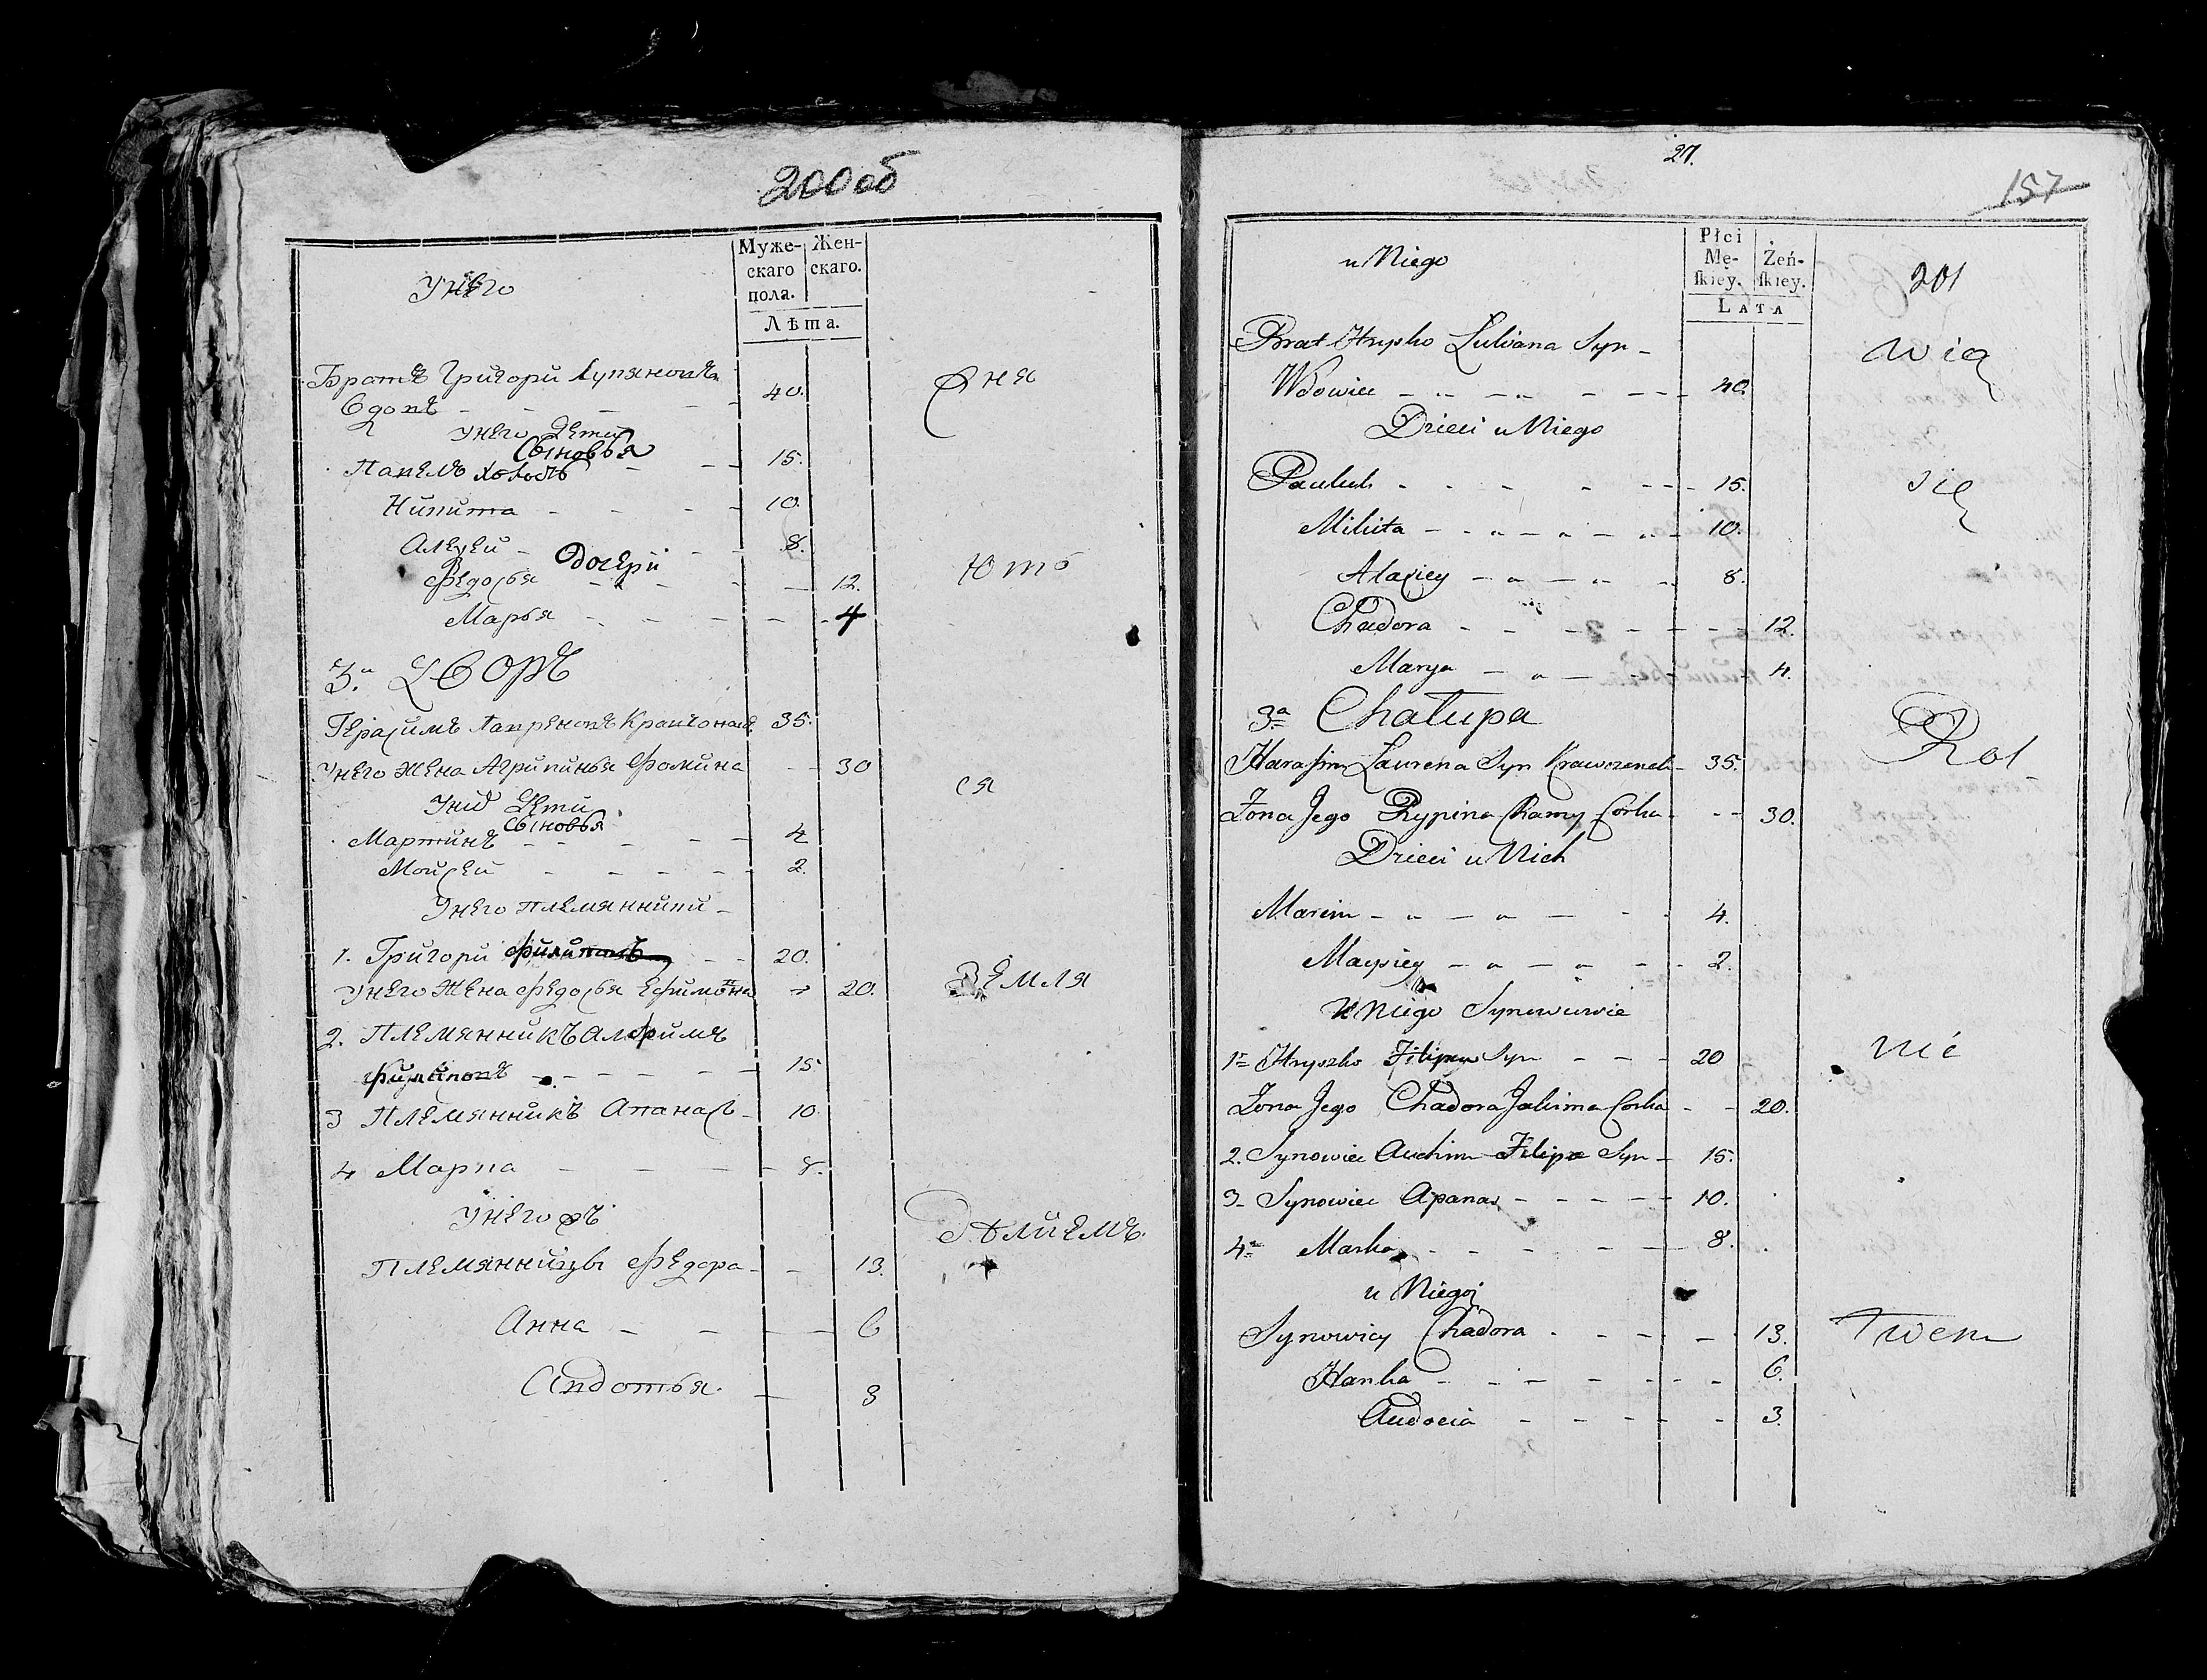 200об
Муже-
скаго
пола.
Жен-
скаго.
Лѣта.
Унего
Братъ Григори Лукяновъ
Вдовъ 40.
Дня
Унего Дети
Сыновья
Павелъ 15.
Никита 10.
Алексей 8.
Дочери
Федосья 12.
Ютъ
Марья 4
3.й Дворъ
Герасимъ Лавреновъ 35.
Унего Жена Агрипинья Фомина 30
ся
Унихъ Дети
Сыновья
Мартинъ 4
Мойсей 2.
Унего племянники
1. Григори Филиповъ 20.
Унего Жена Федосья Ефимовна 20.
Земля
2. Племянникъ
Филиповъ 15
3 Племянникъ Апанасъ 10.
4 Марка 8.
Унегожъ
Племянницы Федора 13.
Анна 6
Авдотья 3
27.
157
u Niego
Płci
Mę-
ſkiey.
Żeń-
ſkiey.
LATA
201
Brat Hrysko Lukiana Syn
Wdowiec 40.
wią
Dzieci u Niego
Pauluk 15.
się
Mikita 10.
Alaxiey 8.
Chadora 12.
Marya 4.
3a Chałupa
Rol
Harasim Laurena Syn Krawczenok 35.
Żona Jego Rypina Chamy Corka 30.
Dzieci u Nich
Marcin 4.
Maysiey 2.
u Niego Synowcowie
nie
1= Hryszko Filipa Syn 20
Żona Jego Chadora Jakima Corka 20.
2. Synowiec Auchim Filipa Syn 15.
3- Synowiec Apanas 10.
4= Marko 8.
u Niegoż
Synowicy Chadora 13.
Twem
Hanka 6.
Audocia 3.